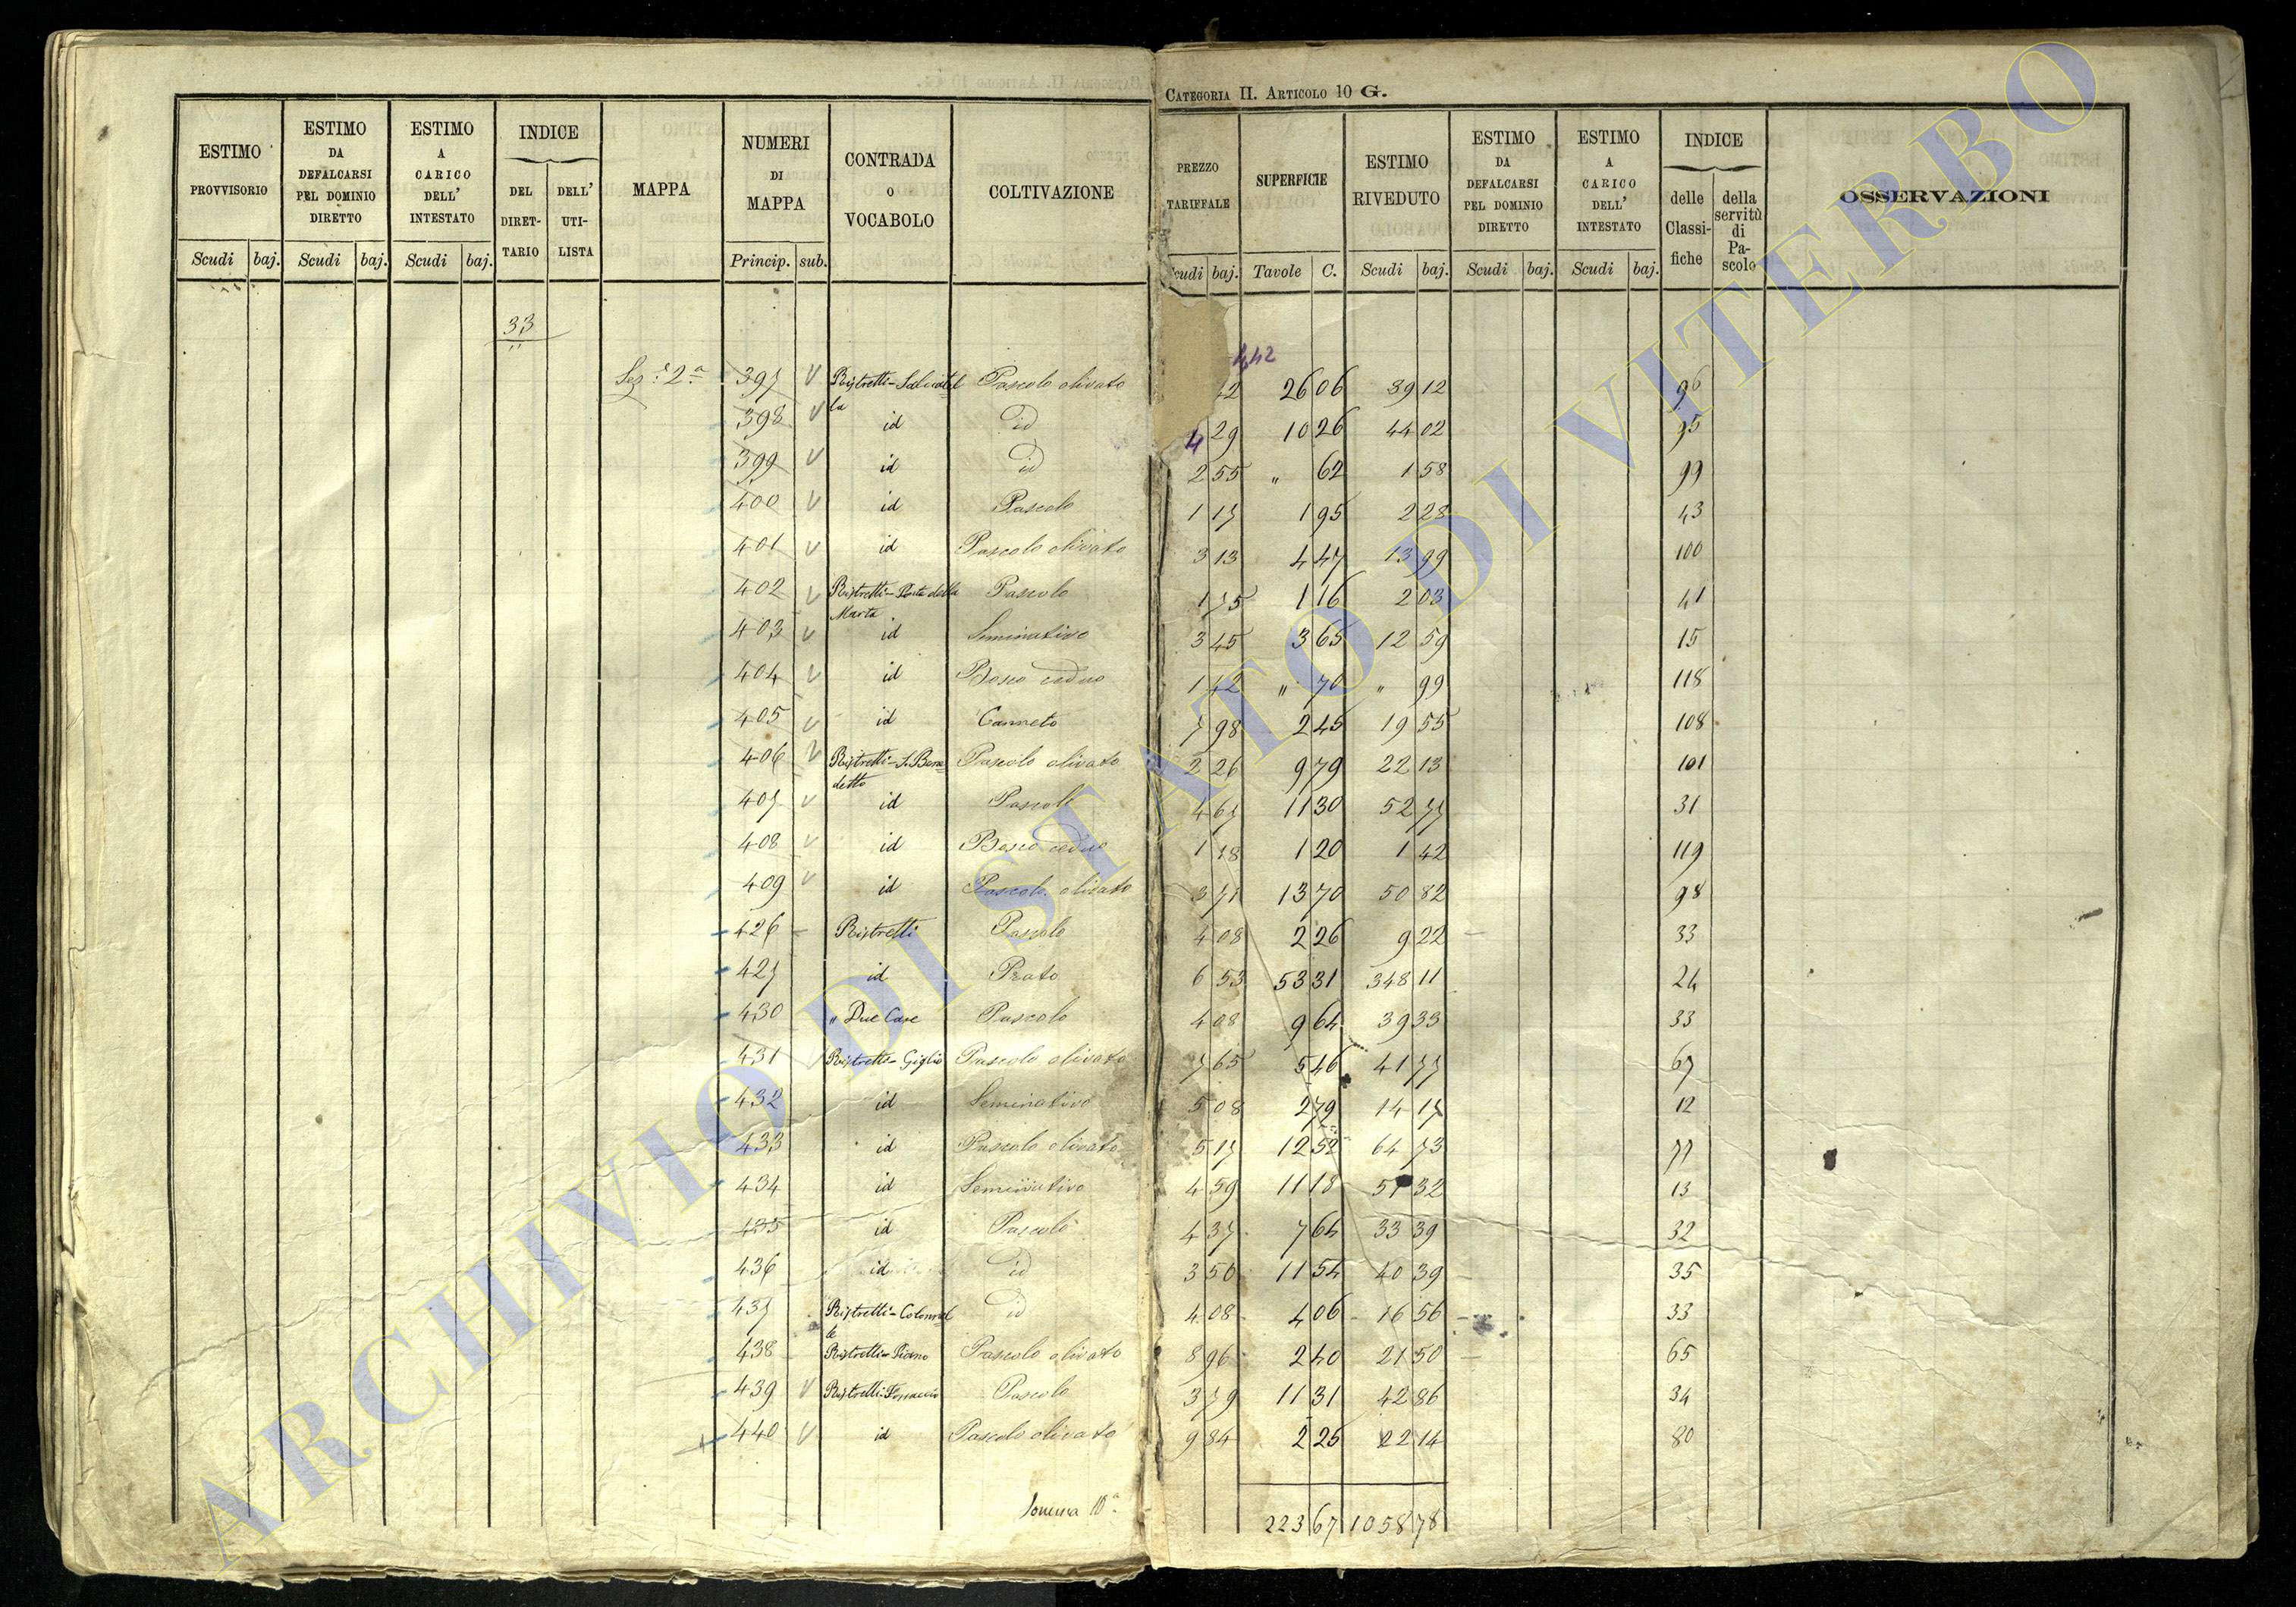 CATEGORIA II. ARTICOLO 10 G.
ESTIMO PROVVISORIO | ESTIMO DA DEFALCARSI PEL DOMINIO DIRETTO | ESTIMO A CARICO DELL' INTESTATO | INDICE DEL DIRET-TARIO | DELL' UTI-LISTA | MAPPA | NUMERI DI MAPPA | CONTRADA O VOCABOLO | COLTIVAZIONE | PREZZO TARIFFALE | SUPERFICIE | ESTIMO RIVEDUTO | ESTIMO DA DEFALCARSI PEL DOMINIO DIRETTO | ESTIMO A CARICO DELL' INTESTATO | INDICE delle Classi-fiche | della servitù di Pa-scolo | OSSERVAZIONI
Scudi baj. | Scudi baj. | Scudi baj. | Princip. sub. | Scudi baj. | Tavole C. | Scudi baj. | Scudi baj. | Scudi baj.
33
"
442
Sez.e 2a 397 V Ristretti - Pascolo olivato 42 26 06 39 12 96
398 V id id 4 29 10 26 44 02 95
399 V id id 2 55 " 62 1 58 99
400 V id Pascolo 1 17 1 95 2 28 43
401 V id Pascolo olivato 3 13 4 47 13 99 100
402 V Ristretti - della Marta Pascolo 1 75 1 16 2 03 41
403 V id Seminativo 3 45 3 65 12 59 15
404 V id Bosco ceduo 1 42 " 70 " 99 118
405 V id Canneto 7 98 2 45 19 55 108
406 V Ristretti - S. Bene=detto Pascolo olivato 2 26 9 79 22 13 101
407 V id Pascolo 4 67 11 30 52 77 31
408 V id Bosco ceduo 1 18 1 20 1 42 119
409 V id Pascolo olivato 3 71 13 70 50 82 98
426 Ristretti Pascolo 4 08 2 26 9 22 33
427 id Prato 6 53 53 31 348 11 24
430 " Due Case Pascolo 4 08 9 64 39 33 33
431 Ristretti - Giglio Pascolo olivato 7 65 5 46 41 77 67
432 id Seminativo 5 08 2 79 14 17 12
433 id Pascolo olivato 5 17 12 52 64 73 77
434 id Seminativo 4 59 11 18 51 32 13
435 id Pascolo 4 37 7 64 33 39 32
436 id id 3 50 11 54 40 39 35
437 Ristretti - id 4 08 4 06 16 56 33
438 Ristretti - Piano Pascolo olivato 8 96 2 40 21 50 65
439 V Ristretti Pascolo 3 79 11 31 42 86 34
440 V id Pascolo olivato 9 84 2 25 22 14 80
Somma 10a 223 67 1058 78
ARCHIVIO DI STATO DI VITERBO